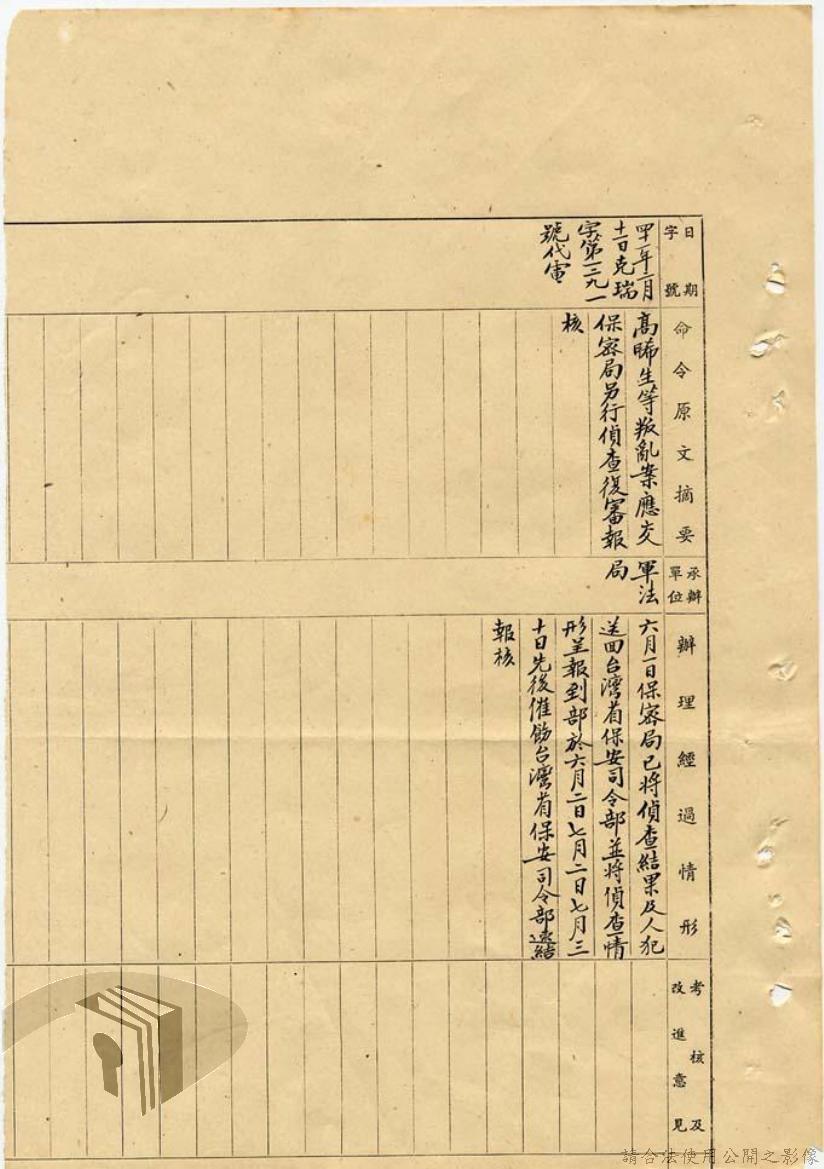 日期
字號
四一年二月
十一日克瑞
字第一三九一
號代電
命令原文摘要
高晞生等叛亂案應交
保密局另行偵查復審報
核
承辦
單位
軍法
局
辦理經過情形
六月一日保密局已將偵查結果及人犯
送回台灣省保安司令部並將偵查情
形呈報到部於六月二日七月二日七月三
十日先後催飭台灣省保安司令部速結
報核
考核及
改進意見
請合法使用公開之影像